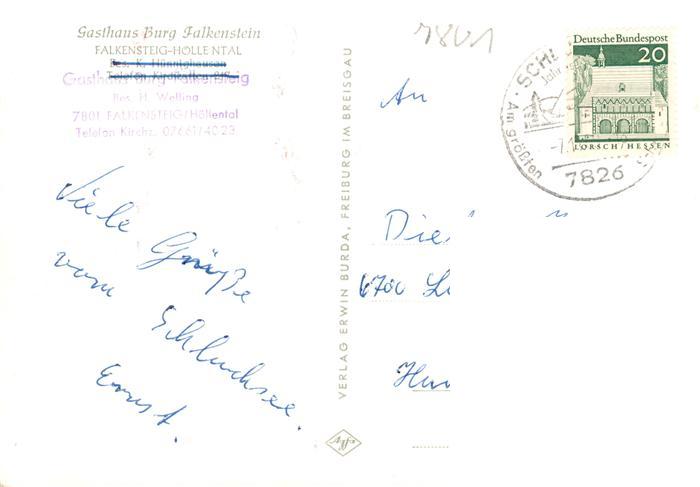 Gasthaus Burg Falkenstein
FALKENSTEIG-HÖLLENTAL
Bes. K. Hünnighausen
Gasthaus Burg Falkensteig
Bes. H. Welling
7801 FALKENSTEIG/Höllental
Telefon Kirchz. 07661/4023
Viele Grüße
vom Schluchsee.
Ernst.
VERLAG ERWIN BURDA, FREIBURG IM BREISGAU
Agfa
7801
Deutsche Bundespost
20
LORSCH/HESSEN
Am größten
7826
An
Die
6700 L